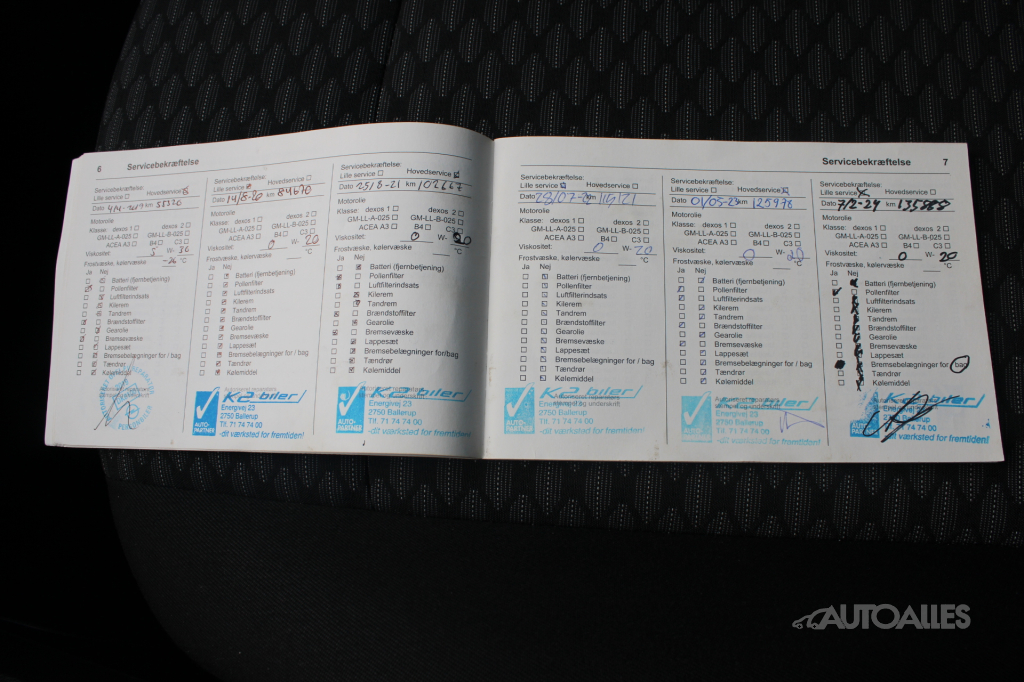 6 Servicebekræftelse
Servicebekræftelse:
Lille service Hovedservice
Dato 4/4-2019 km 58320
Motorolie
Klasse: dexos 1 dexos 2
GM-LL-A-025 GM-LL-B-025
ACEA A3 B4 C3
Viskositet: 5 W- 30
Frostvæske, kølervæske -26 °C
Ja Nej
Batteri (fjernbetjening)
Pollenfilter
Luftfilterindsats
Kilerem
Tandrem
Brændstoffilter
Gearolie
Bremsevæske
Lappesæt
Bremsebelægninger for / bag
Tændrør
Kølemiddel
Servicebekræftelse:
Lille service Hovedservice
Dato 14/8-20 km 84670
Motorolie
Klasse: dexos 1 dexos 2
GM-LL-A-025 GM-LL-B-025
ACEA A3 B4 C3
Viskositet: 0 W- 20
Frostvæske, kølervæske °C
Ja Nej
Batteri (fjernbetjening)
Pollenfilter
Luftfilterindsats
Kilerem
Tandrem
Brændstoffilter
Gearolie
Bremsevæske
Lappesæt
Bremsebelægninger for / bag
Tændrør
Kølemiddel
K2 biler
Energivej 23
2750 Ballerup
Tlf. 71 74 74 00
AUTO-PARTNER
-dit værksted for fremtiden!
Servicebekræftelse:
Lille service Hovedservice
Dato 25/8-21 km 102667
Motorolie
Klasse: dexos 1 dexos 2
GM-LL-A-025 GM-LL-B-025
ACEA A3 B4 C3
Viskositet: 0 W- 20
Frostvæske, kølervæske °C
Ja Nej
Batteri (fjernbetjening)
Pollenfilter
Luftfilterindsats
Kilerem
Tandrem
Brændstoffilter
Gearolie
Bremsevæske
Lappesæt
Bremsebelægninger for/bag
Tændrør
Kølemiddel
K2 biler
Energivej 23
2750 Ballerup
Tlf. 71 74 74 00
AUTO-PARTNER
-dit værksted for fremtiden!
Servicebekræftelse 7
Servicebekræftelse:
Lille service Hovedservice
Dato km
Motorolie
Klasse: dexos 1 dexos 2
GM-LL-A-025 GM-LL-B-025
ACEA A3 B4 C3
Viskositet: 0 W- 20
Frostvæske, kølervæske °C
Ja Nej
Batteri (fjernbetjening)
Pollenfilter
Luftfilterindsats
Kilerem
Tandrem
Brændstoffilter
Gearolie
Bremsevæske
Lappesæt
Bremsebelægninger for / bag
Tændrør
Kølemiddel
K2 biler
Energivej 23
2750 Ballerup
Tlf. 71 74 74 00
AUTO-PARTNER
-dit værksted for fremtiden!
Servicebekræftelse:
Lille service Hovedservice
Dato 01/05-23 km 125978
Motorolie
Klasse: dexos 1 dexos 2
GM-LL-A-025 GM-LL-B-025
ACEA A3 B4 C3
Viskositet: 0 W- 20
Frostvæske, kølervæske °C
Ja Nej
Batteri (fjernbetjening)
Pollenfilter
Luftfilterindsats
Kilerem
Tandrem
Brændstoffilter
Gearolie
Bremsevæske
Lappesæt
Bremsebelægninger for / bag
Tændrør
Kølemiddel
K2 biler
Energivej 23
2750 Ballerup
Tlf. 71 74 74 00
-dit værksted for fremtiden!
Servicebekræftelse:
Lille service Hovedservice
Dato km
Motorolie
Klasse: dexos 1 dexos 2
GM-LL-A-025 GM-LL-B-025
ACEA A3 B4 C3
Viskositet: 0 W- 20
Frostvæske, kølervæske °C
Ja Nej
Batteri (fjernbetjening)
Pollenfilter
Luftfilterindsats
Kilerem
Tandrem
Brændstoffilter
Gearolie
Bremsevæske
Lappesæt
Bremsebelægninger for / bag
Tændrør
Kølemiddel
K2 biler
Energivej 23
2750 Ballerup
Tlf. 71 74 74 00
AUTO-PARTNER
-dit værksted for fremtiden!
AUTOALLES